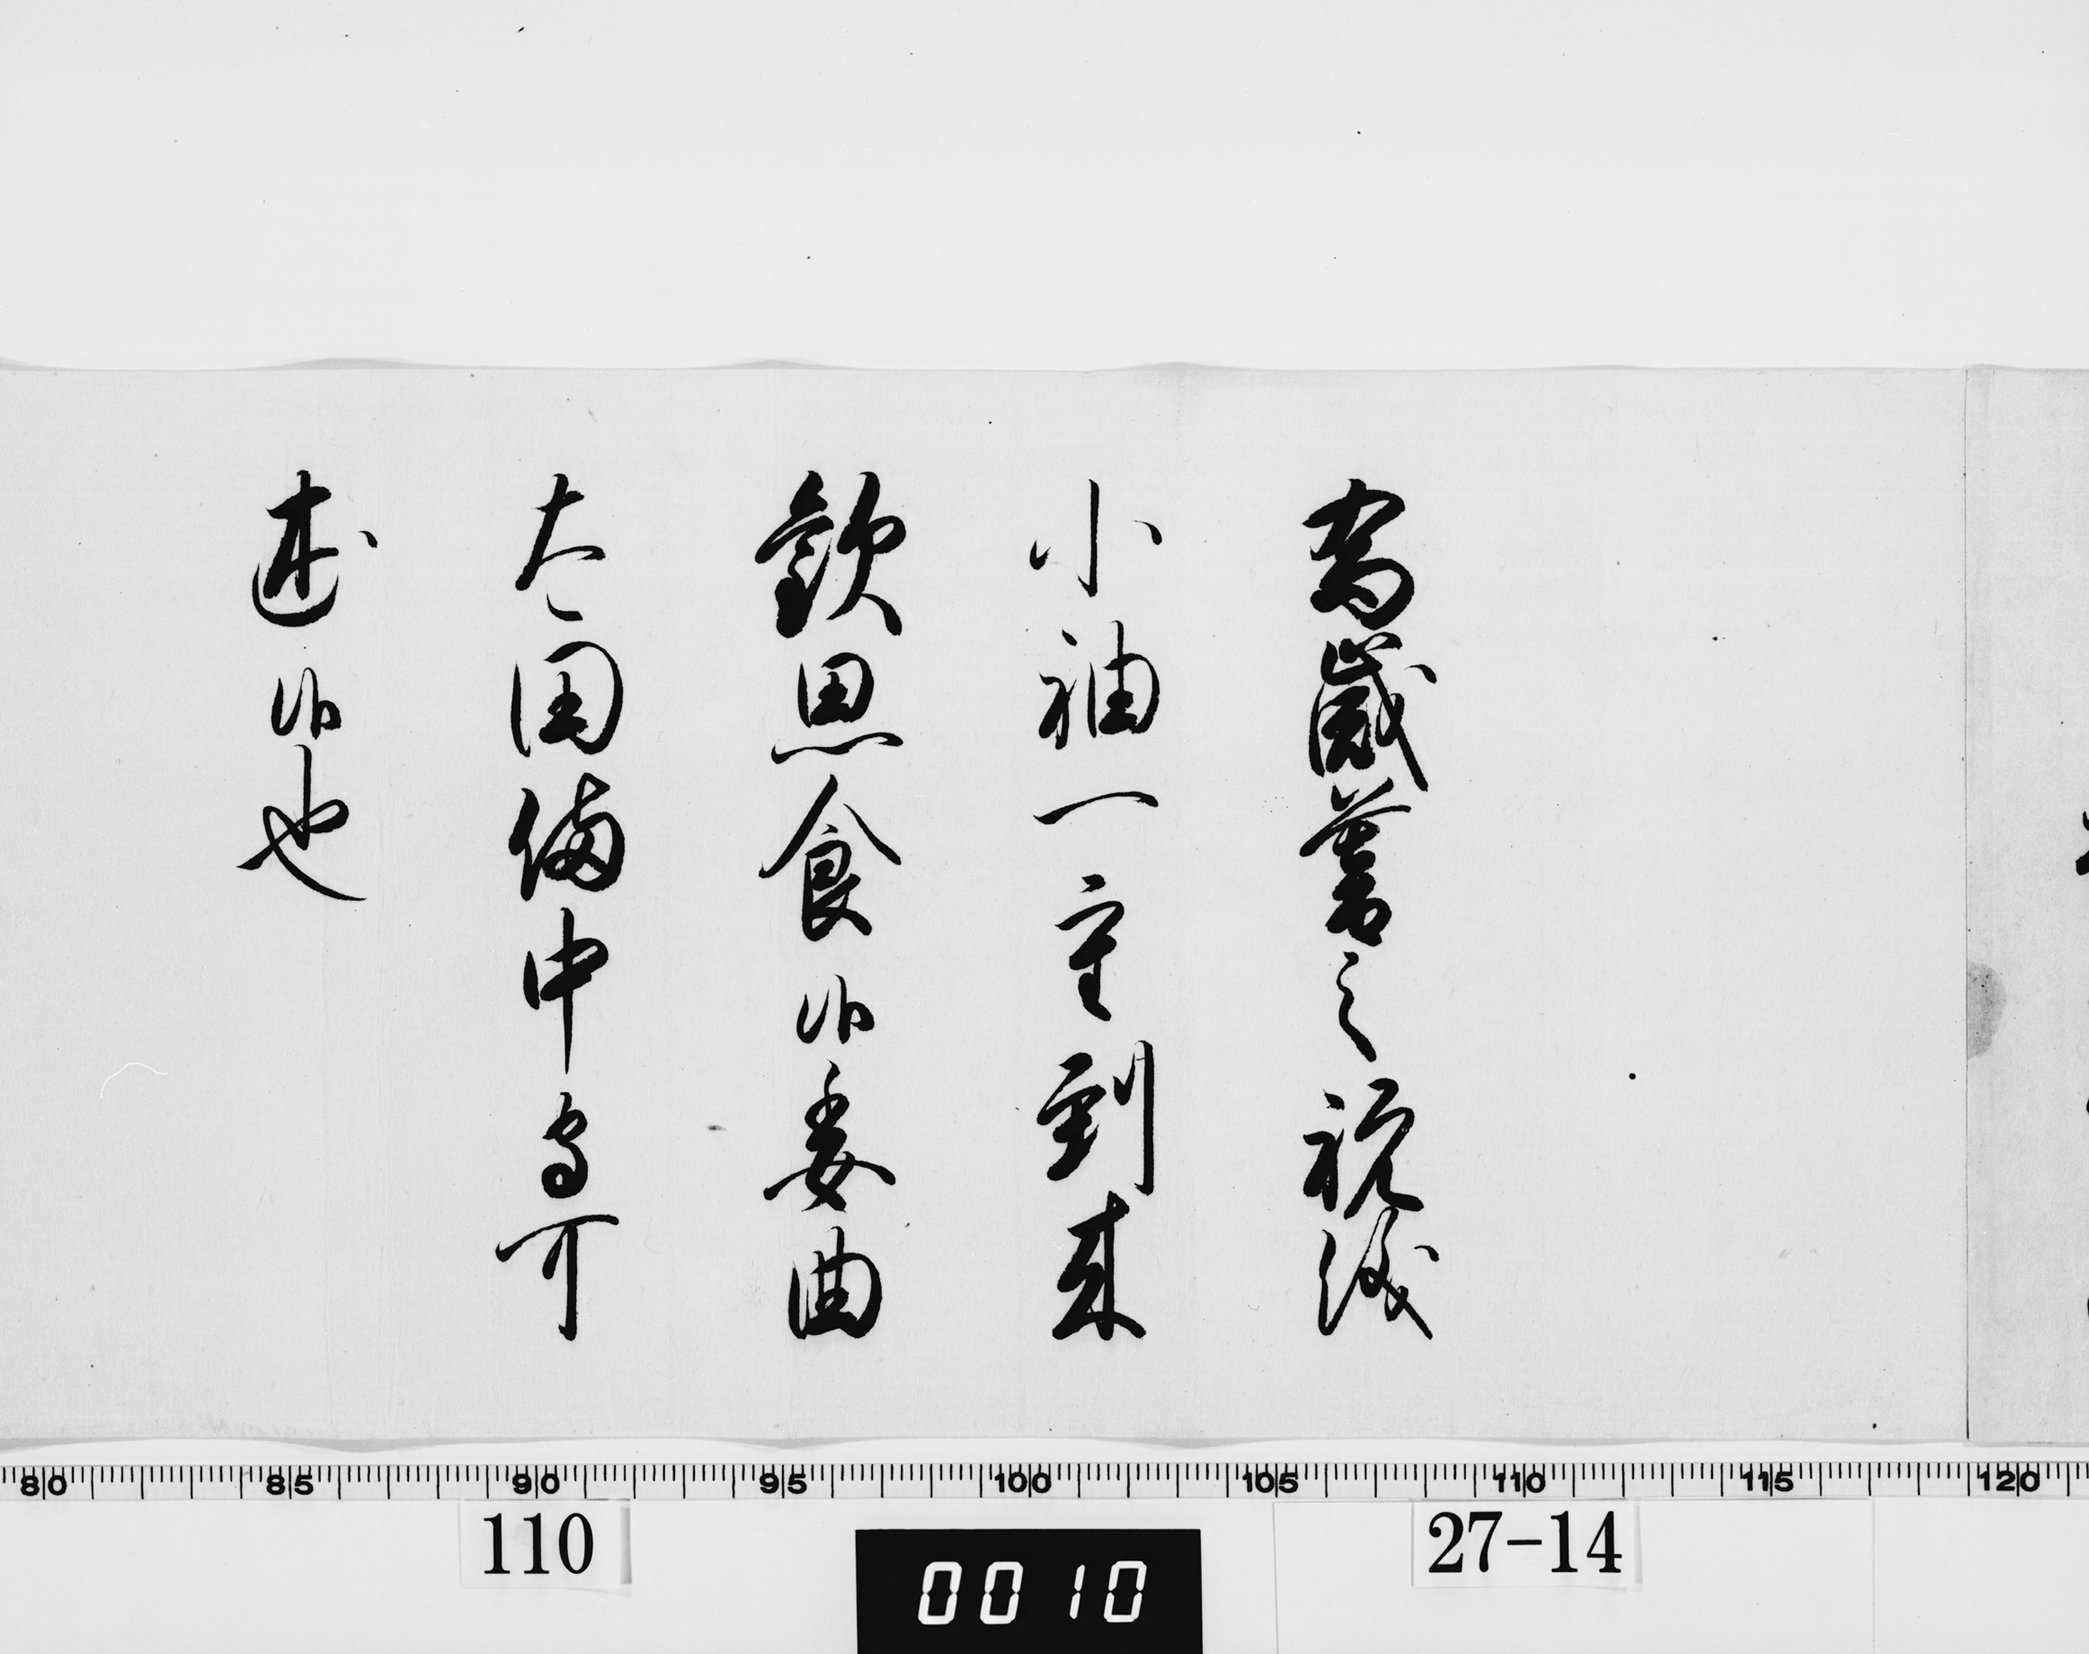 為歳暮之祝儀
小袖一重到来
歓思食候委曲
太田備中守可
述候也
80 85 90 95 100 105 110 115 120
110
0010
27-14